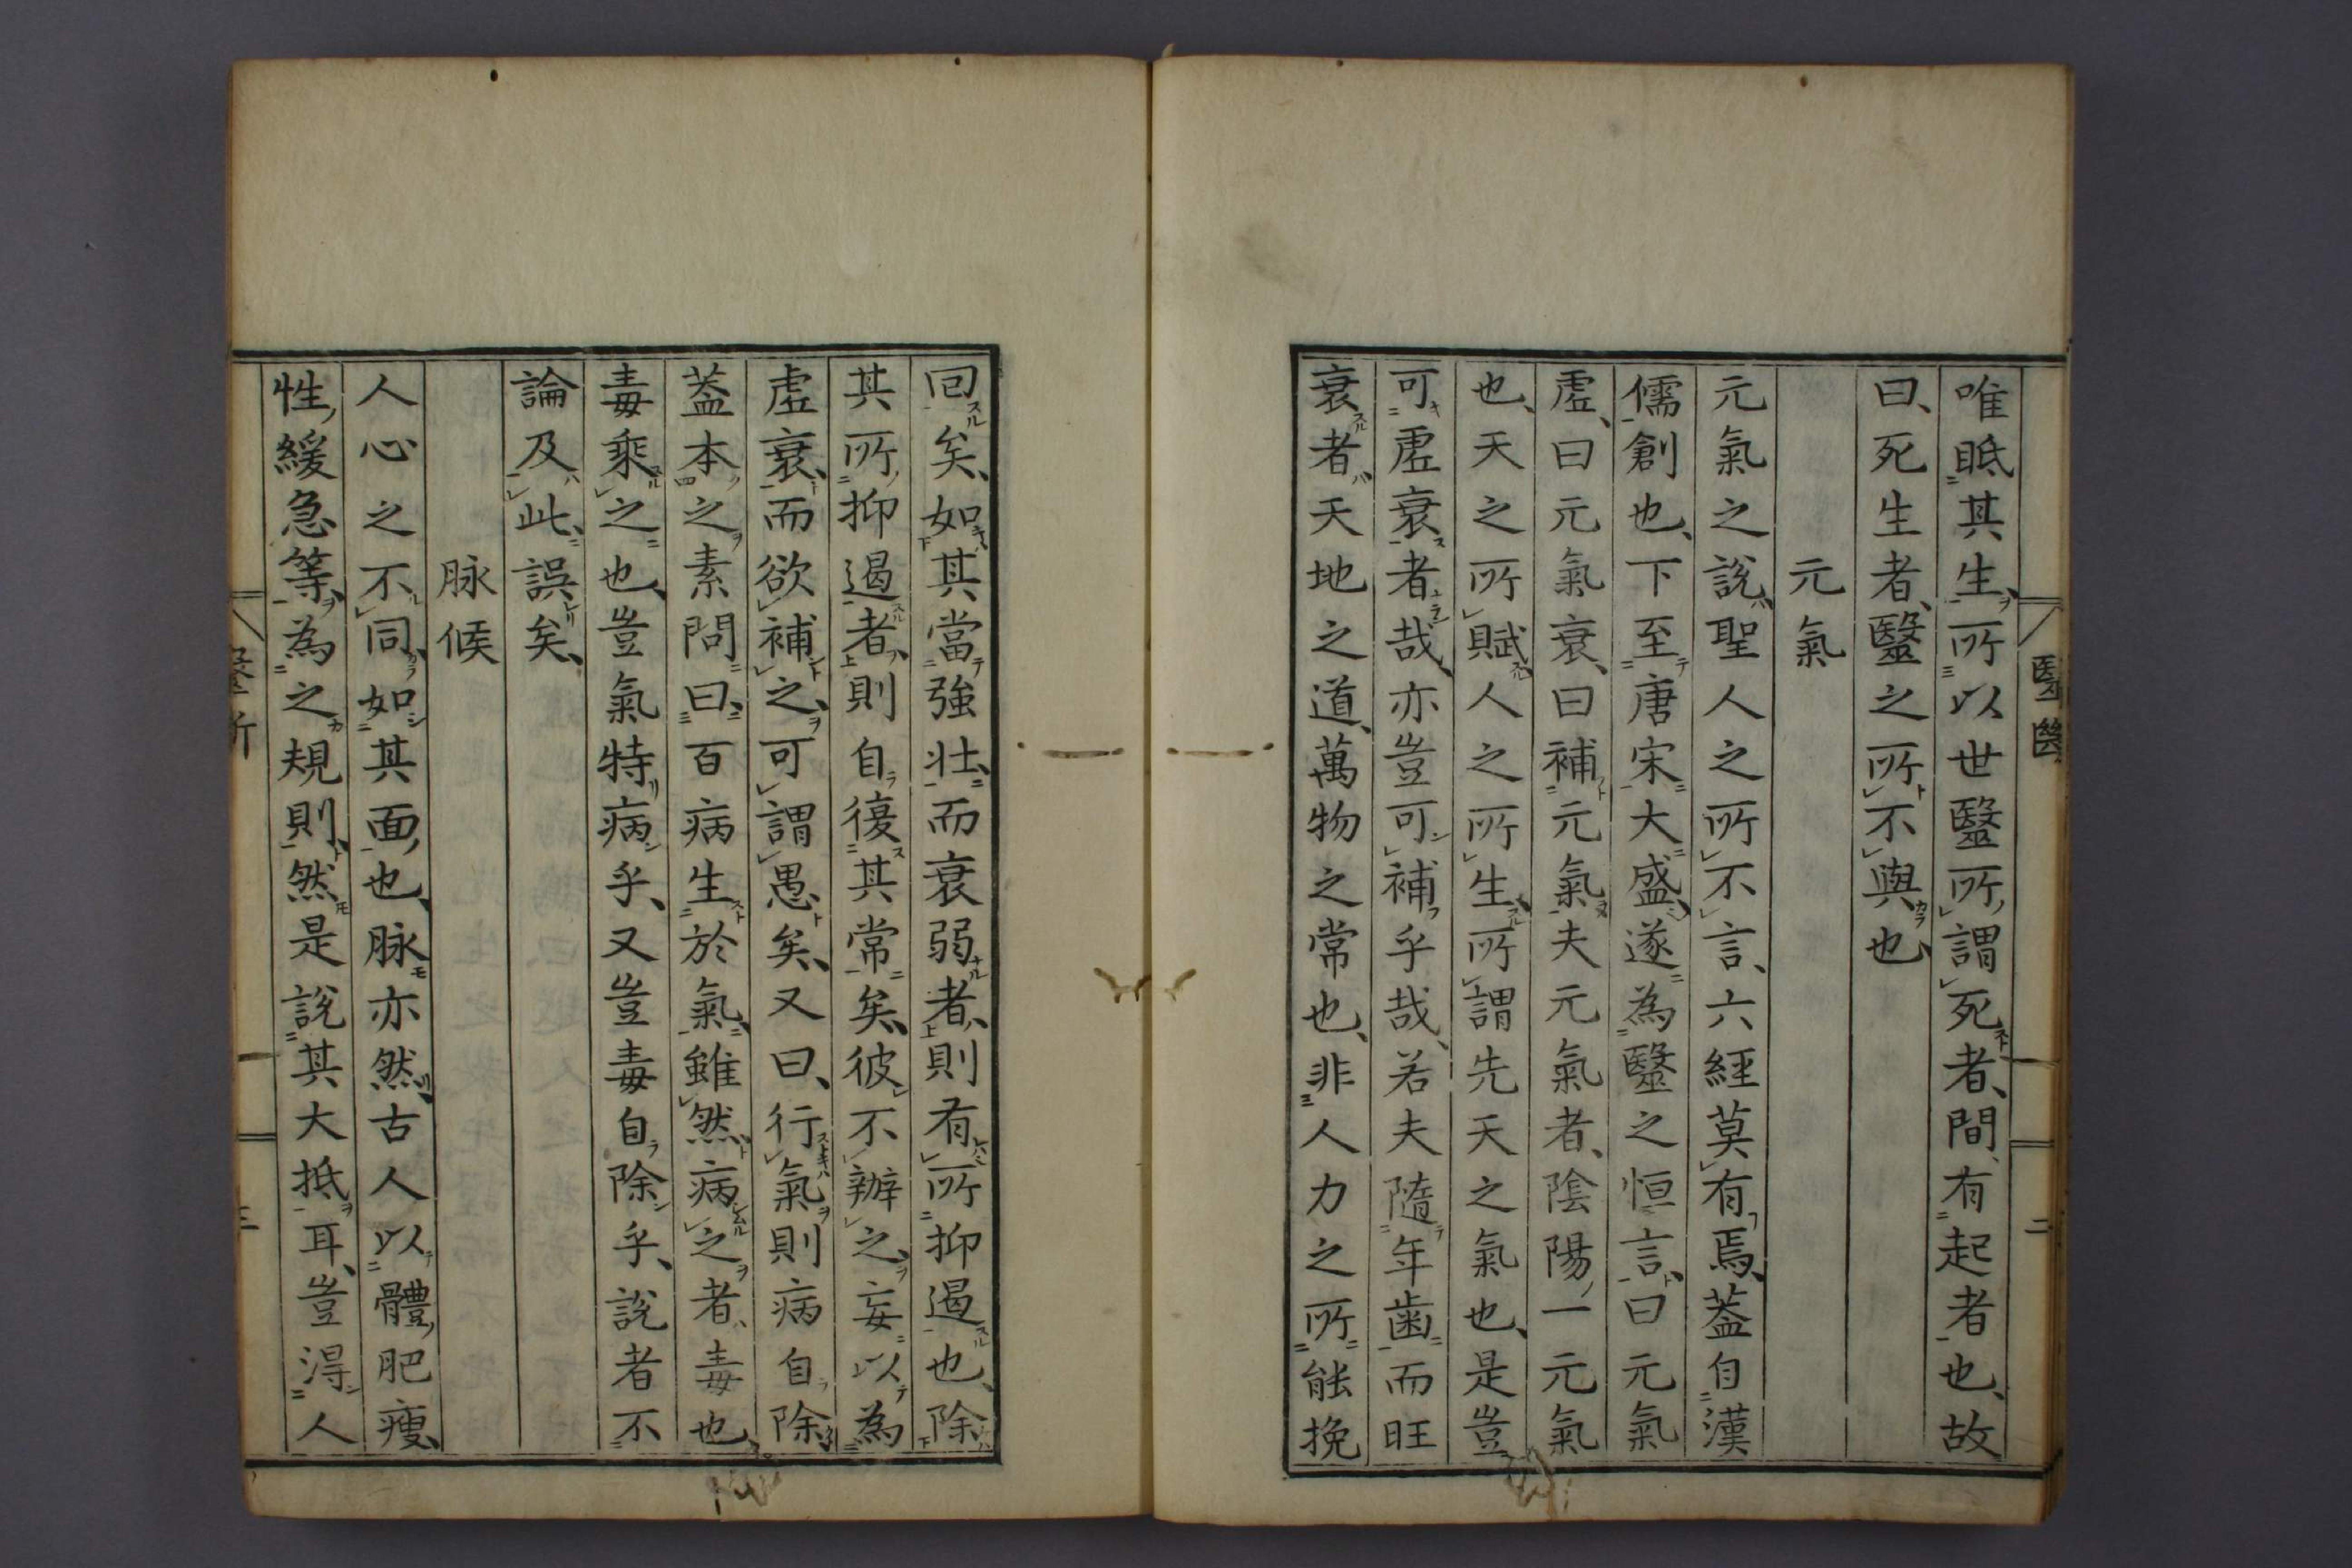 唯眂其生、所以世毉所謂死者、間有起者也、故
曰、死生者、毉之所不與也、
元氣
元氣之說、聖人之所不言、六經莫有焉、葢自漢
儒創也、下至唐宋大盛、遂為毉之恒言、曰元氣
虛、曰元氣衰、曰補元氣、夫元氣者、陰陽一元氣
也、天之所賦、人之所生、所謂先天之氣也、是豈
可虛衰者哉、亦豈可補乎哉、若夫隨年齒而旺
衰者、天地之道、萬物之常也、非人力之所能挽
回矣、如其當強壯、而衰弱者、則有所抑遏也、除
其所抑遏者、則自復其常矣、彼不辦之、妄以為
虛衰、而欲補之、可謂愚矣、又曰、行氣則病自除、
葢本之素問曰、百病生於氣、雖然、病之者、毒也、
毒乘之也、豈氣特病乎、又豈毒自除乎、說者不
論及此、誤矣、
脉候
人心之不同、如其面也、脉亦然、古人以體肥瘦、
性緩急等、為之規則、然是說其大抵耳、豈得人